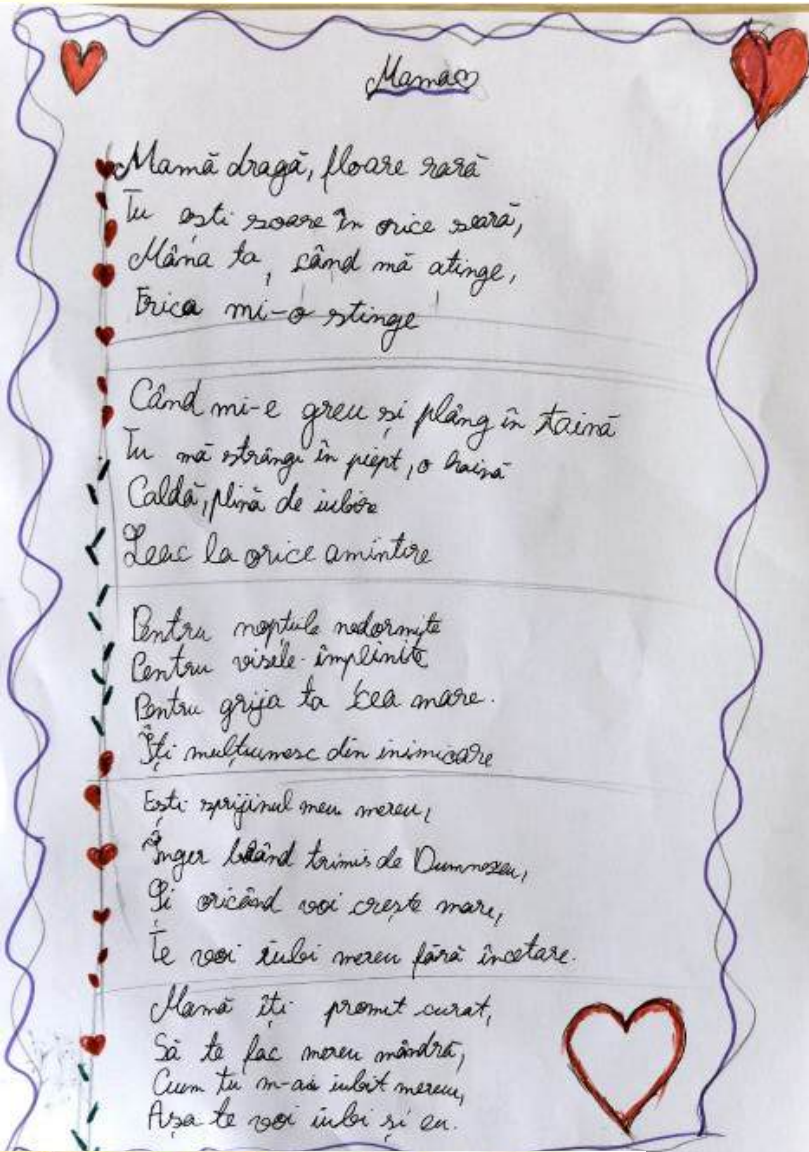 Mama
Mamă dragă, floare rară
Tu ești soare în orice seară,
Mâna ta, când mă atinge,
Frica mi-o stinge
Când mi-e greu și plâng în taină
Tu mă strângi în piept, o haină
Caldă, plină de iubire
Leac la orice amintire
Pentru nopțule nedormite
Pentru visele împlinite
Pentru grija ta cea mare.
Îți mulțumesc din inimioare
Ești sprijinul meu mereu,
Înger blând trimis de Dumnezeu,
Și oricând voi crește mare,
Te voi iubi mereu fără încetare.
Mamă îți promit curat,
Să te fac mereu mândră,
Cum tu m-ai iubit mereu,
Așa te voi iubi și eu.